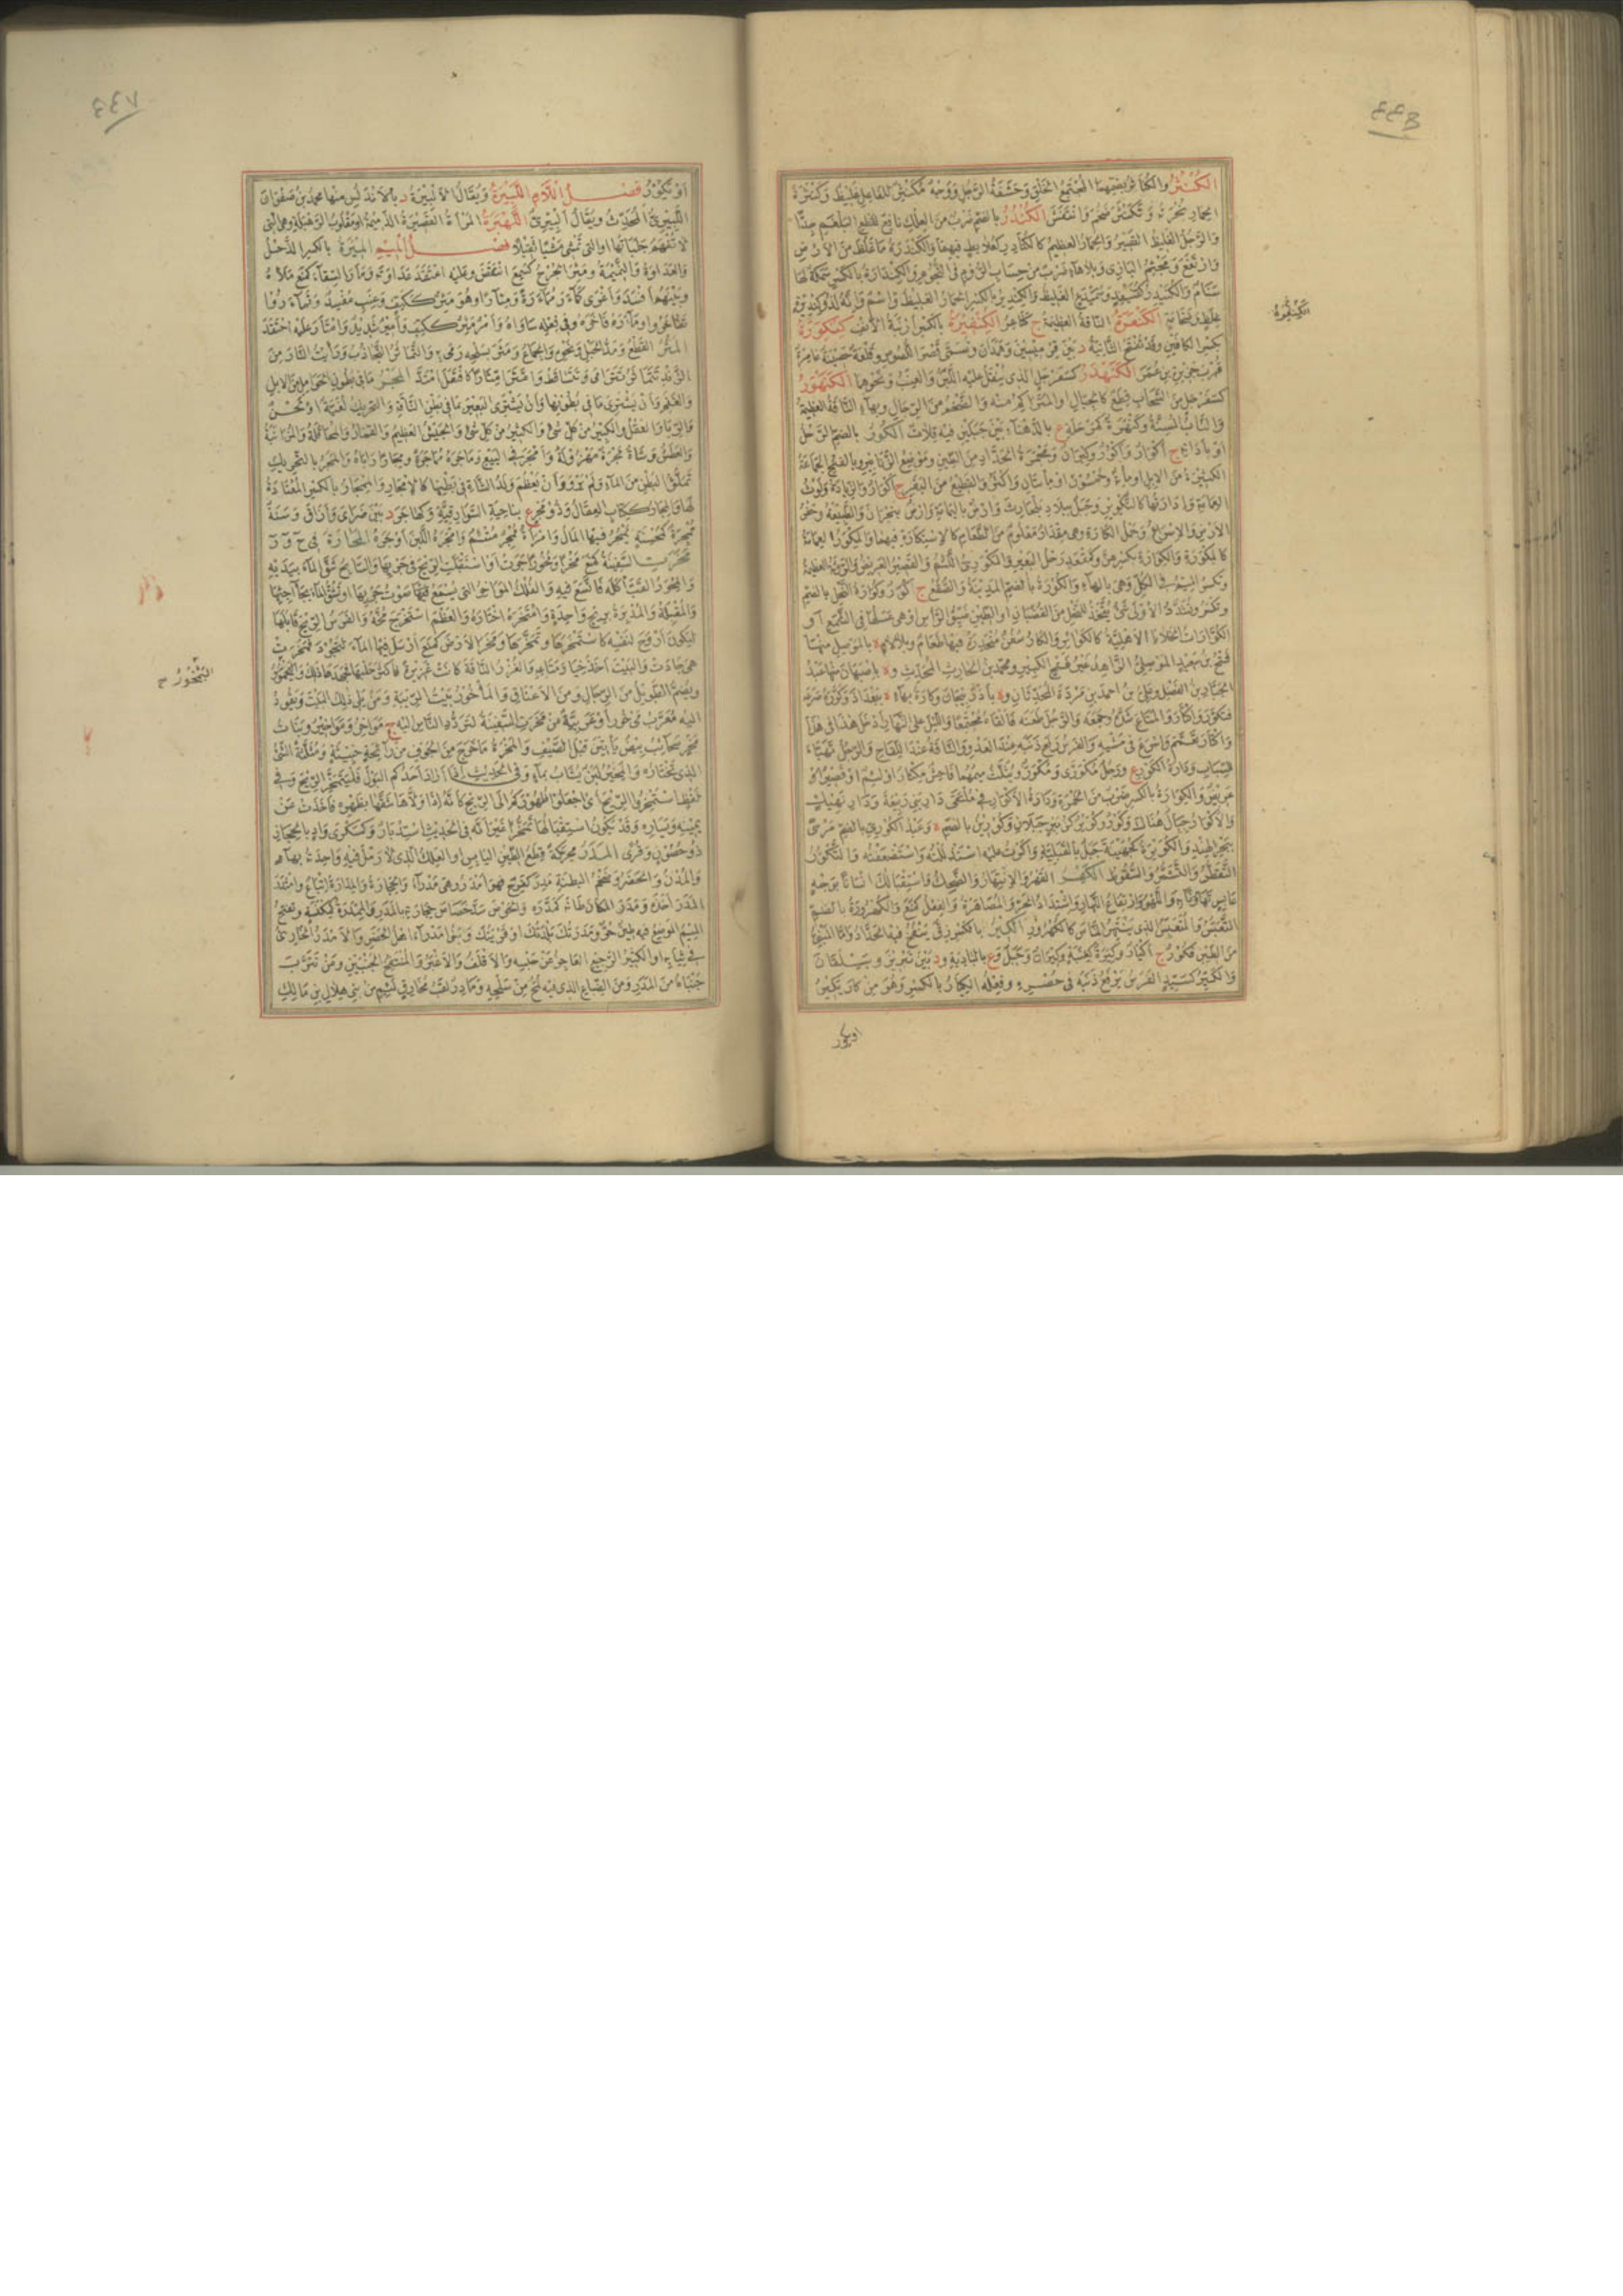 الكُنْثُرُ والكُنَاثِرُ بضمهما المجتمع الخلق وحشفة الرجل ووجه مكنثر للفاعل غليظ وكنثرة
الحمار نخرته وتكنثر ضخم وانتفش الكُنْدُرُ بالضم ضرب من العلك نافع لقطع البلغم جدّا
والرجل الغليظ القصير والحمار العظيم كالكنادر كعلابط فيهما والكندرة ما غلظ من الارض
وارتفع ومجثم البازى وبلا هاء ضرب من حساب الروم فى النجوم والكندارة بالكسر سمكة لها
سنام والكنيدر كقنيفذ وسميدع الغليظ والكندير بالكسر الحمار الغليظ واسم وانه لذو كنديرة
غلظ وضخامة الكَنْعَرَةُ الناقة العظيمة ج كناعر الكِنْفِيرَةُ بالكسر ارنبة الانف كِنْكِوَرُ
بكسر الكافين وقد تفتح الثانية د بين قرميسين وهمذان وتسمى قصر اللصوص وقلعة حصينة عامرة
قرب جزيرة ابن عمر الكَنَهْدَرُ كسفرجل الذى ينقل عليه اللبن والعنب ونحوهما الكَنَهْوَرُ
كسفرجل من السحاب قطع كالجبال او المتراكم منه والضخم من الرجال وبهاء الناقة العظيمة
والناب المسنة وكنهرة كمرحلة ع بالدهناء بين جبلين فيه قلات الكُورُ بالضم الرحل
او باداته ج اكوار واكور وكيران ومجمرة الحداد من الطين وموضع الزنابير وبالفتح الجماعة
الكثيرة من الابل او مائة وخمسون او مائتان واكثر والقطيع من البقر ج اكوار والزيادة ولوث
العمامة وادارتها كالتكوير وجبل ببلاد بلحارث وارض باليمامة وارض بنجران والطبيعة وحفر
الارض والاسراع وحمل الكارة وهى مقدار معلوم من الطعام كالاستكارة فيهما والمكور العمامة
كالمكورة والكوارة بكسرهن وكمقعد رحل البعير والمكورّى اللئيم والقصير العريض والروثة العظيمة
وتكسر الميم فى الكل وهى بالهاء والكورة بالضم المدينة والصقع ج كور وكوارة النحل بالضم
وتكسر وتشدد الاولى شىء يتخذ للنحل من القضبان او الطين ضيق الراس او هى عسلها فى الشمع او
الكوارات الخلايا الاهلية كالكوائر والكار سفن منحدرة فيها طعام وبلا لام ة بالموصل منها
فتح بن سعيد الموصلى الزاهد غير فتح الكبير ومحمد بن الحارث المحدث وة باصبهان منها عبد
الجبار بن الفضل وعلى بن احمد بن مردة المحدثان وة باذربيجان وكارة بهاء ة ببغداد وكوره صرعه
فتكور واكتار والمتاع شده وجمعه والرجل طعنه فالقاه مجتمعا والليل على النهار ادخل هذا فى هذا
واكتار تعمم واسرع فى مشيه والفرس رفع ذنبه عند العدو والناقة عند اللقاح والرجل تهيأ
للسباب ودارة الكور ع ورجل مكورّى ومكورّ ويثلث ميمهما فاحش مكثار او لئيم او قصير
عريض والكوارة بالكسر ضرب من الخمرة ودارة الاكوار فى ملتقى دار بنى ربيعة ودار نهيك
والاكوار جبال هناك وكور وكوير كزبير جبلان وكورين بالضم ة وعبد الكورى بالضم مرسى
ببحر الهند والكويرة كجهينة جبل بالقبلية واكرت عليه استذللته واستضعفته والتكور
التقطر والتشمر والسقوط الكَهْرُ القهر والانتهار والضحك واستقبالك انسانا بوجه
عابس تهاونا به واللهو وارتفاع النهار واشتداد الحر والمصاهرة والفعل كمنع والكهرورة بالضم
التعبس والمتعبس الذى ينتهر الناس كالكهرور الكِيرُ بالكسر زق ينفخ فيه الحداد واما المبنى
من الطين فكور ج اكيار وكيرة كعنبة وكيران وجبل وع بالبادية ود بين تبريز وبيلقان
والكيّر كسيّد الفرس يرفع ذنبه فى حضره وفعله الكيار بالكسر وهو من كار يكير
الكِنْفِيرَةُ
او يكور
او يكور فصل اللام اللَّبِيرَةُ ويقال الالبيرة د بالاندلس منها محمد بن صفوان
اللبيرى المحدث ويقال البيرى اللَّهْبَرَةُ المرأة القصيرة الدميمة او مقلوب الرهبلة وهى التى
لا تفهم جلباتها او التى تمشى مشيا ثقيلا فصل الميم المِئْرَةُ بالكسر الذحل
والعداوة والنميمة ومئر الجرح كسمع انتقض وعليه اعتقد عداوته ومأر السقاء كمنع ملأه
وبينهم افسد واغرى كماءر مماءرة ومئارا وهو مئر ككتف وعنب مفسد وتماءروا
تفاخروا وماءره فاخره وفى فعله ساواه وامر مئر ككتف وامير شديد وامتأر عليه احتقد
المَتْرُ القطع ومد الحبل ونحوه والجماع ومتر بسلحه رمى به والتماتر التجاذب ورأيت النار من
الزند تتماتر تترامى وتتساقط وامّتر امّتارا كافتعل امتد المَجْرُ ما فى بطون الحوامل من الابل
والغنم وان يشترى ما فى بطونها وان يشترى البعير بما فى بطن الناقة والتحريك لغية او لحن
والربا والعقل والكثير من كل شىء والجيش العظيم والقمار والمحاقلة والمزابنة
والعطش وشاة مجرة مهزولة وامجر فى البيع وماجره مماجرة ومجارا راباه والمجر بالتحريك
تملؤ البطن من الماء ولم يرو وان يعظم ولد الشاة فى بطنها كالامجار والممجار بالكسر المعتادة
لها والمجار ككتاب العقال وذو مجر ع بناحية السوارقية وكهاجر د بين ضراى وازاق وسنة
ممجرة كمحسنة يمجر فيها المال وامرأة ممجر متئم وامجره اللبن اوجره المَحَارَةُ فى ح و ر
مَخَرَتِ السفينة كمنع مخرا ومخورا جرت او استقبلت الريح فى جريها والسابح شق الماء بيديه
والمحور القب اكله فاتسع فيه والفلك المواخر التى يسمع صوت جريها او تشق الماء بجآجئها
والمقبلة والمدبرة بريح واحدة وامتخره اختاره والعظم استخرج مخه والفرس الريح قابلها
ليكون اروح لنفسه كاستمخرها وتمخرها ومخر الارض كمنع ارسل فيها الماء لتجود فمخرت
هى جادت والبيت اخذ خيار متاعه والغزر الناقة كانت غزيرة فاكثر حلبها فجهدها ذلك واليمخور
ويضم الطويل من الرجال ومن الاعناق والماخور بيت الريبة ومن يلى ذلك البيت ويقود
اليه معرب مى خور او عربية من مخرت السفينة لتردد الناس اليه ج مواخر ومواخير وبنات
مخر سحائب بيض يأتين قبل الصيف والمخرة ما خرج من الجوف من رائحة خبيثة ومثلثة الشىء
الذى تختاره والمخير لبن يشاب بماء وفى الحديث اذا اراد احدكم البول فليتمخر الريح وفى
لفظ استمخروا الريح اى اجعلوا ظهوركم الى الريح كأنه اذا ولاها شقها بظهره فاخذت عن
يمينه ويساره وقد يكون استقبالها تمخرا غير انه فى الحديث استدبار وكسكرى واد بالحجاز
ذو حصون وقرى المَدَرُ محركة قطع الطين اليابس او العلك الذى لا رمل فيه واحدته بهاء
والمدن والحضر وضخم البطنة مدر كفرح فهو امدر وهى مدراء والحجارة والمدارة اتباع وامتدر
المدر اخذه ومدر المكان طانه كمدّره والحوض سد خصاص حجارته بالمدر والممدرة كمكنسة وتفتح
الميم الموضع فيه طين حر ومدرتك بلدتك او قريتك وبنو مدراء اهل الحضر والامدر الخارئ
فى ثيابه او الكثير الرجيع العاجز عن حبسه والاقلف والاغبر والمنتفخ الجنبين ومن تترب
جنباه من المدر ومن الضباع الذى فيه لمع من سلحه ومادر لقب مخارق لئيم من بنى هلال بن مالك
اليُمْخُورُ